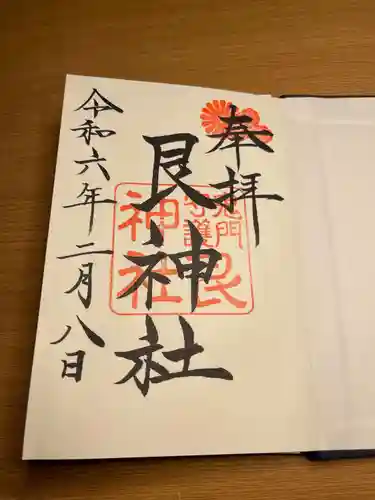 奉拝
艮神社
令和六年二月八日
鬼門
守護
艮
神社